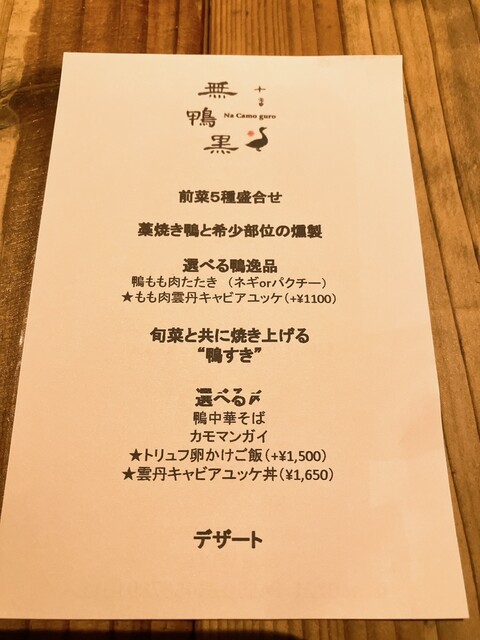 無鴨黒
Na Camo guro
前菜5種盛合せ
藁焼き鴨と希少部位の燻製
選べる鴨逸品
鴨もも肉たたき （ネギorパクチー）
★もも肉雲丹キャビアユッケ（+¥1100）
旬菜と共に焼き上げる
“鴨すき”
選べる〆
鴨中華そば
カモマンガイ
★トリュフ卵かけご飯（+¥1,500）
★雲丹キャビアユッケ丼（¥1,650）
デザート